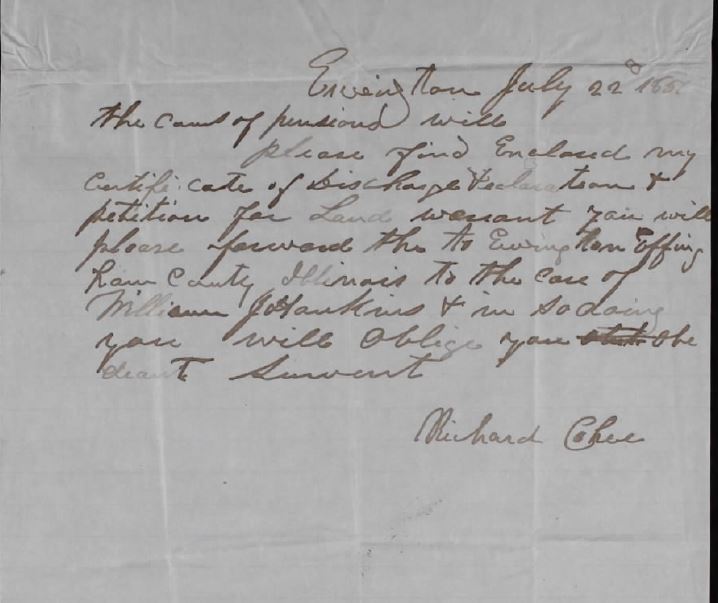 Ewington July 22d 185
the coms of pensiond will
please find Enclosed my
Certificate of Discharge & declaration &
petition for Land warrant you will
please forward the to Ewington Effing
ham County Illinois to the care of
William J Hankins & in so doing
you will Oblige you obe
deant Survent
Richard Cohee